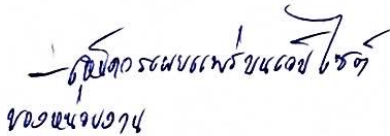 - เห็นควรเผยแพร่บนเว็บไซต์
ของหน่วยงาน